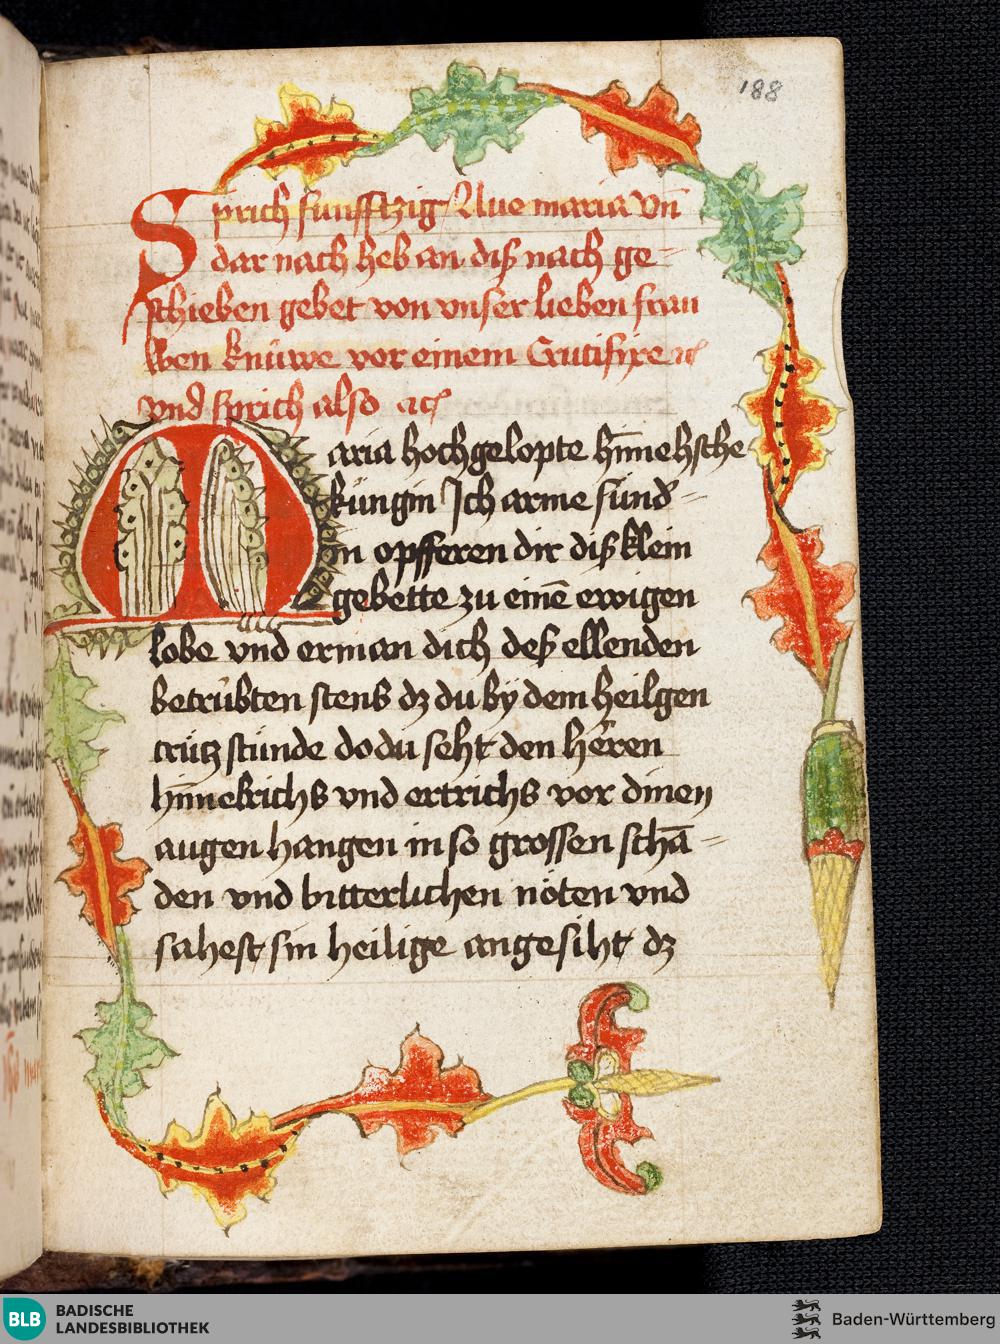 188
Sprich funfftzig Aue maria vn̄
dar nach heb an diß nach ge-
schieben gebet von vnser lieben frau
wen knúwe vor einem Crutifixe ꝛc
vnd sprich also ꝛc
Maria hochgelopte him̄elsche
kúngin Jch arme sund-
in opfferen dir diß klein
gebette zu einē ewigen
lobe vnd erman dich deß ellenden
betrúbten stens dz du by dem heilgen
crútz stúnde do du seht den herren
him̄elrichs vnd ertrichs vor dinen
augen hangen in so grossen schā-
den vnd bitterlichen nöten vnd
sahest sin heilige angesiht dz
BLB BADISCHE
LANDESBIBLIOTHEK
Baden-Württemberg